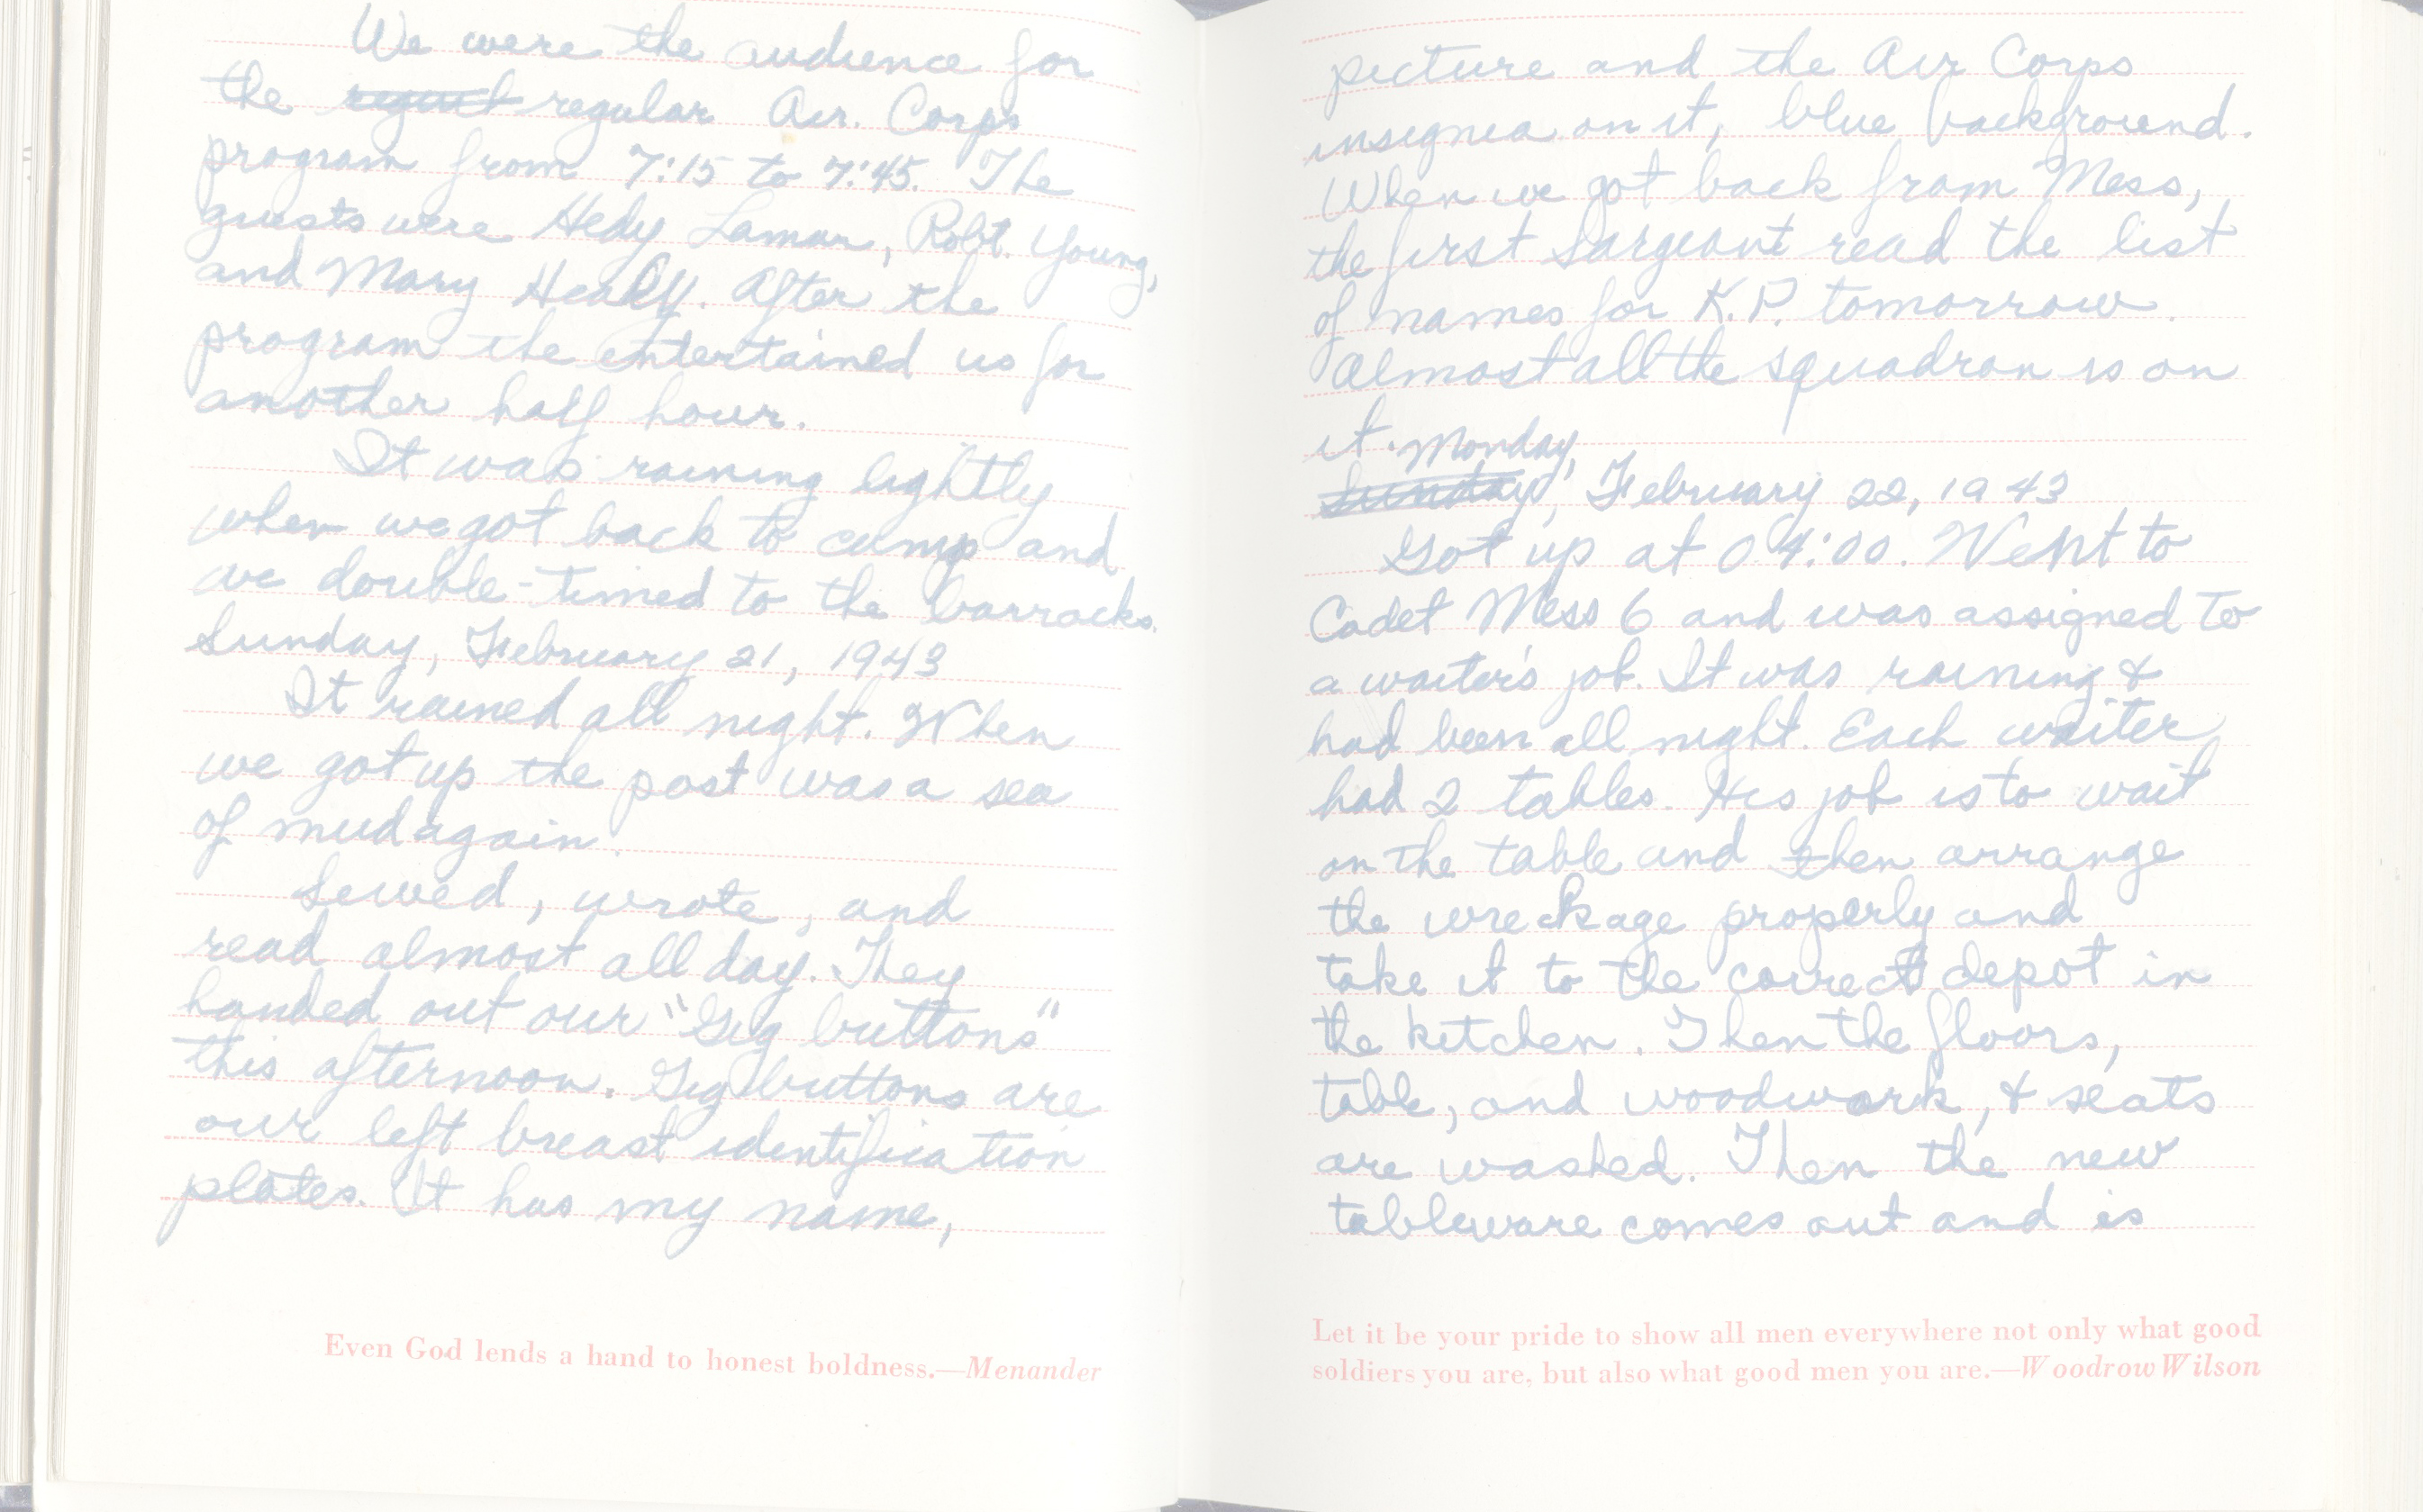 We were the audience for
the regular Air. Corps
program from 7:15 to 7:45. The
guests were Hedy Lamar, Robt. Young,
and Mary Healy. After the
program the entertained us for
another half hour.
It was raining lightly
when we got back to camp and
we double-timed to the barracks.
Sunday, February 21, 1943
It rained all night. When
we got up the post was a sea
of mud again.
Sewed, wrote, and
read almost all day. They
handed out our "Gig buttons"
this afternoon. Gig buttons are
our left breast identification
plates. It has my name,
Even God lends a hand to honest boldness.—Menander
picture and the Air Corps
insignia on it, blue background.
When we got back from Mess,
the first Sargeant read the list
of names for K.P. tomorrow.
Almost all the squadron is on
it. Monday,
Sunday, February 22, 1943
Got up at 04:00. Went to
Cadet Mess 6 and was assigned to
a waiter's job. It was raining &
had been all night. Each waiter
had 2 tables. His job is to wait
on the table and then arrange
the wreckage properly and
take it to the correct depot in
the kitchen. Then the floors,
table, and woodwork, & seats
are washed. Then the new
tableware comes out and is
Let it be your pride to show all men everywhere not only what good
soldiers you are, but also what good men you are.—Woodrow Wilson